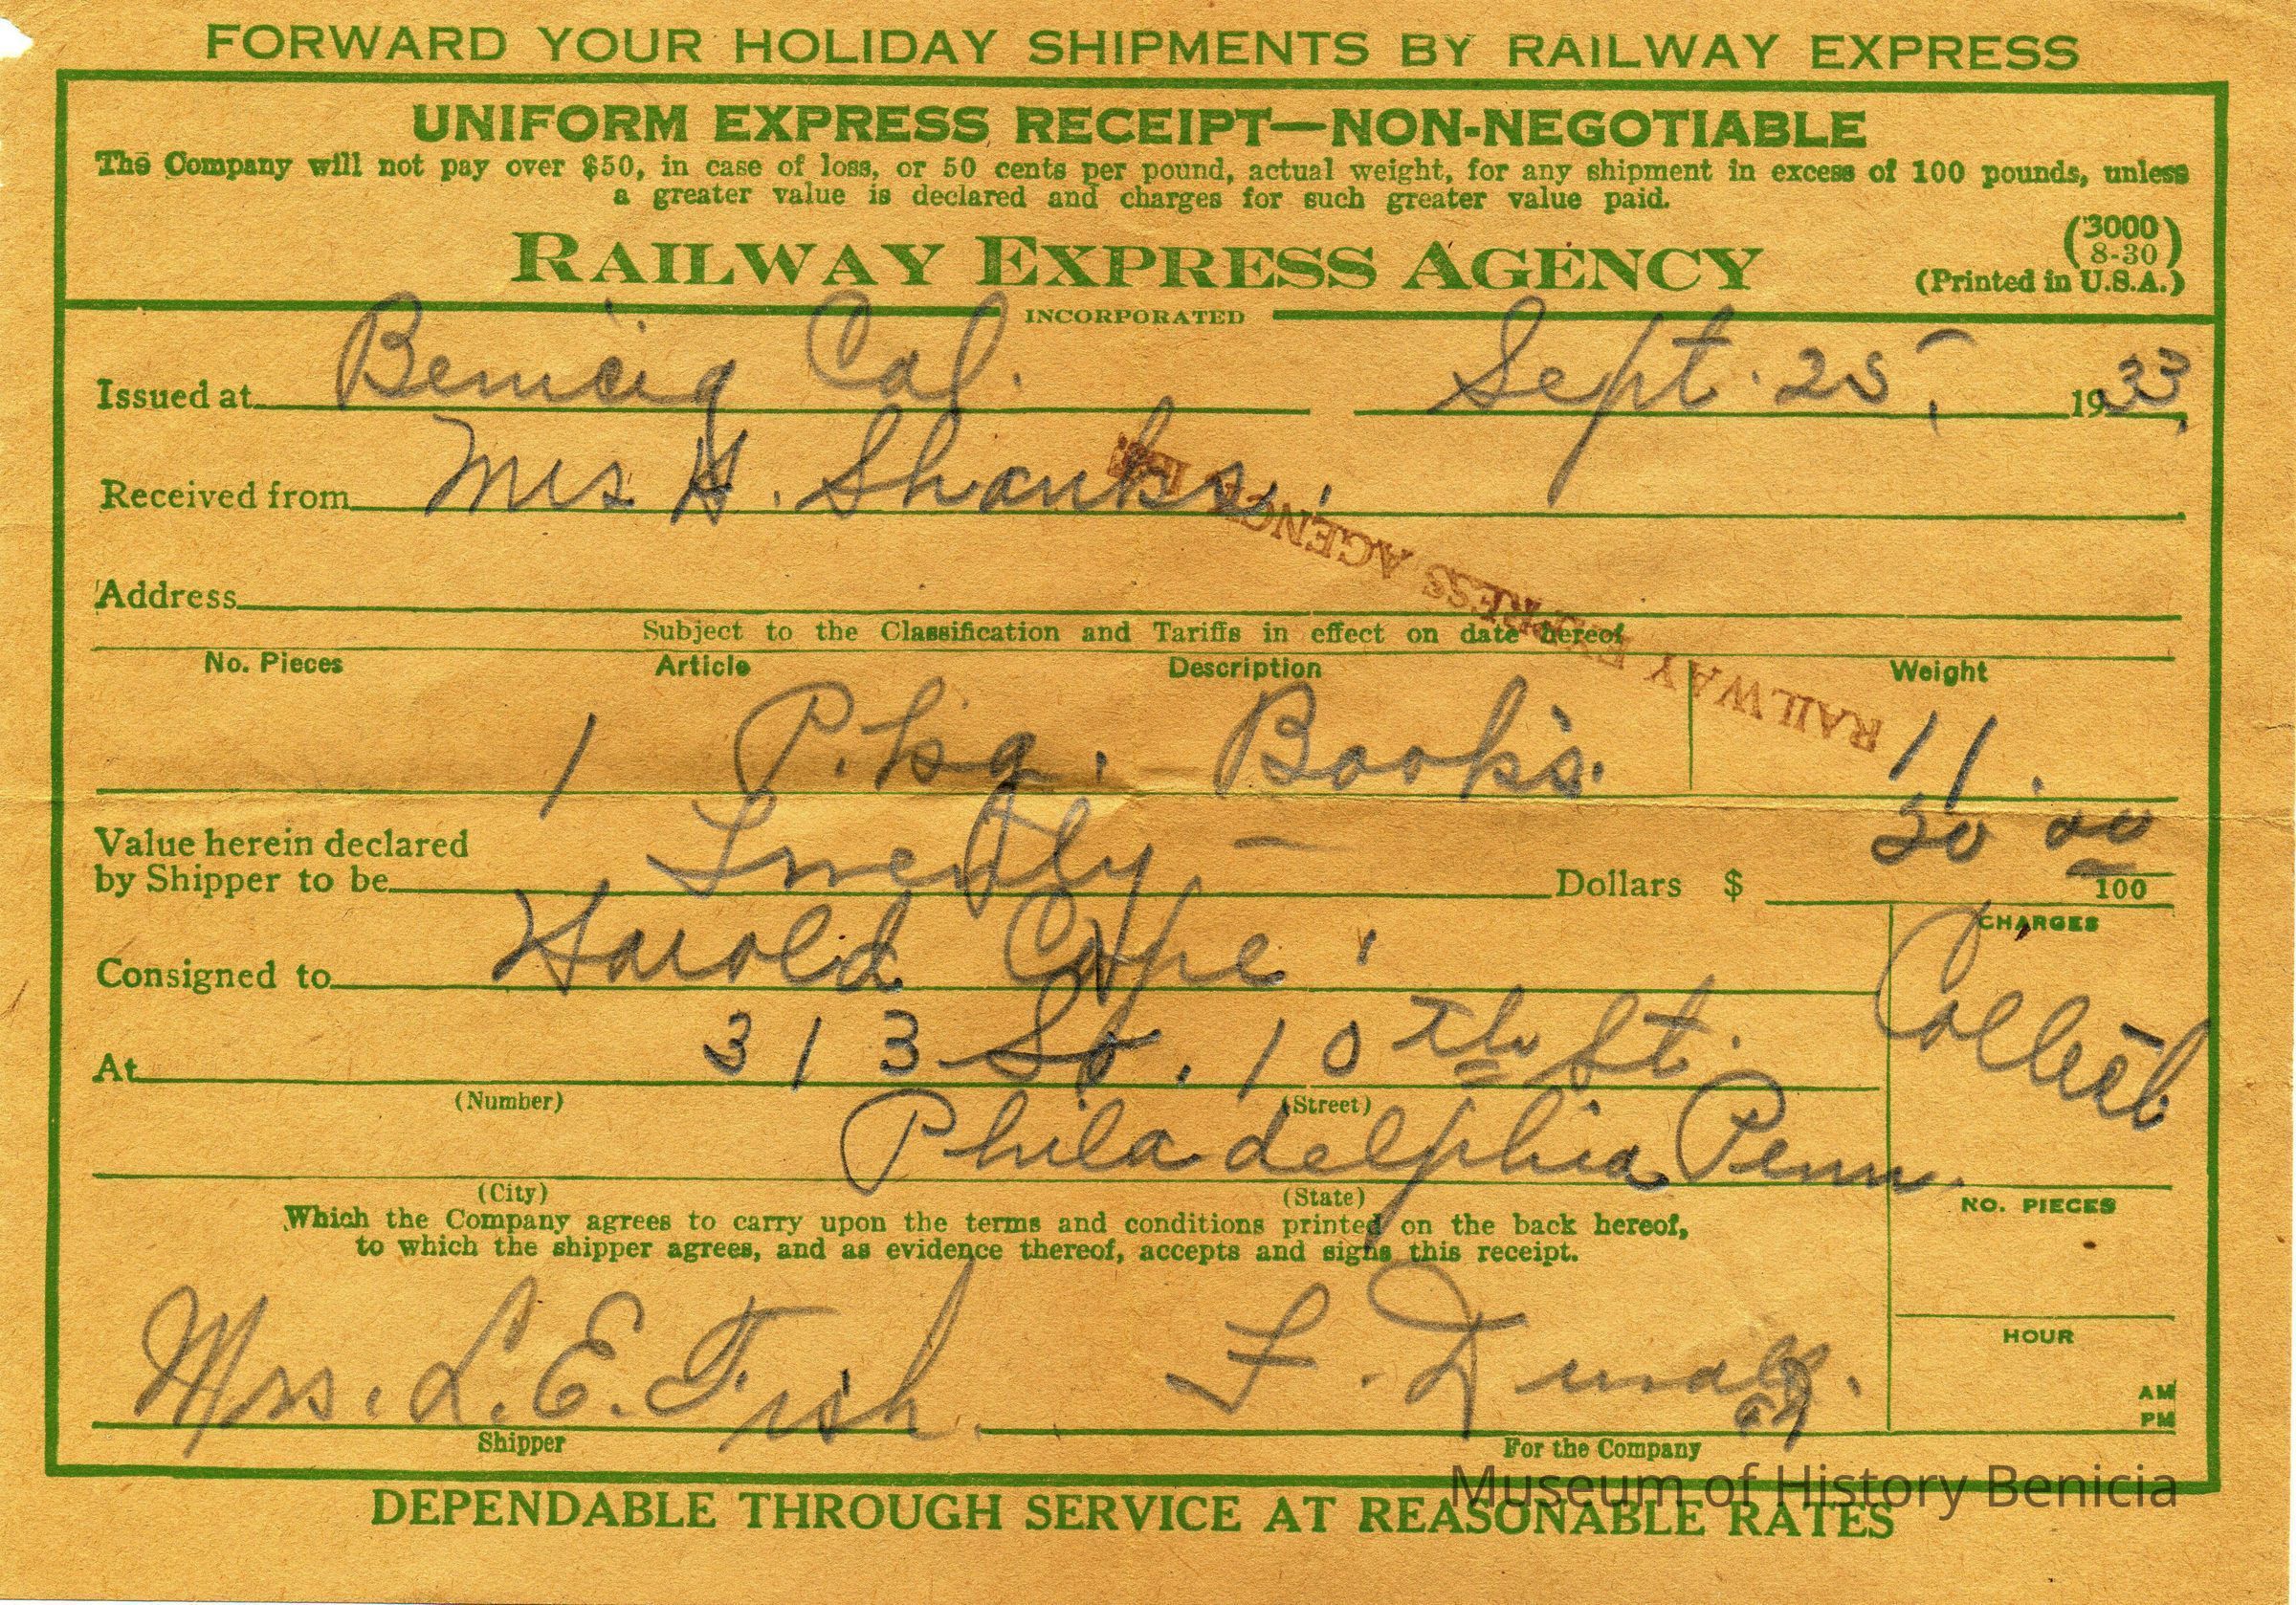 FORWARD YOUR HOLIDAY SHIPMENTS BY RAILWAY EXPRESS
UNIFORM EXPRESS RECEIPT—NON-NEGOTIABLE
The Company will not pay over $50, in case of loss, or 50 cents per pound, actual weight, for any shipment in excess of 100 pounds, unless
a greater value is declared and charges for such greater value paid.
(3000
8-30)
RAILWAY EXPRESS AGENCY
(Printed in U.S.A.)
INCORPORATED
Issued at Benicia Cal. Sept. 25, 1933
Received from Mrs H. Shanks.
RAILWAY EXPRESS AGENCY
Address
Subject to the Classification and Tariffs in effect on date hereof
No. Pieces Article Description Weight
1 P.kg. Books. 11.
Value herein declared
by Shipper to be Twenty Dollars $ 20 00/100
CHARGES
Collect
Consigned to Harold Cope
At 313 So. 10th St.
(Number) (Street)
Philadelphia Penn.
(City) (State)
NO. PIECES
Which the Company agrees to carry upon the terms and conditions printed on the back hereof,
to which the shipper agrees, and as evidence thereof, accepts and signs this receipt.
HOUR
AM
PM
Mrs. L. E. Fish. F.
Shipper For the Company
Museum of History Benicia
DEPENDABLE THROUGH SERVICE AT REASONABLE RATES